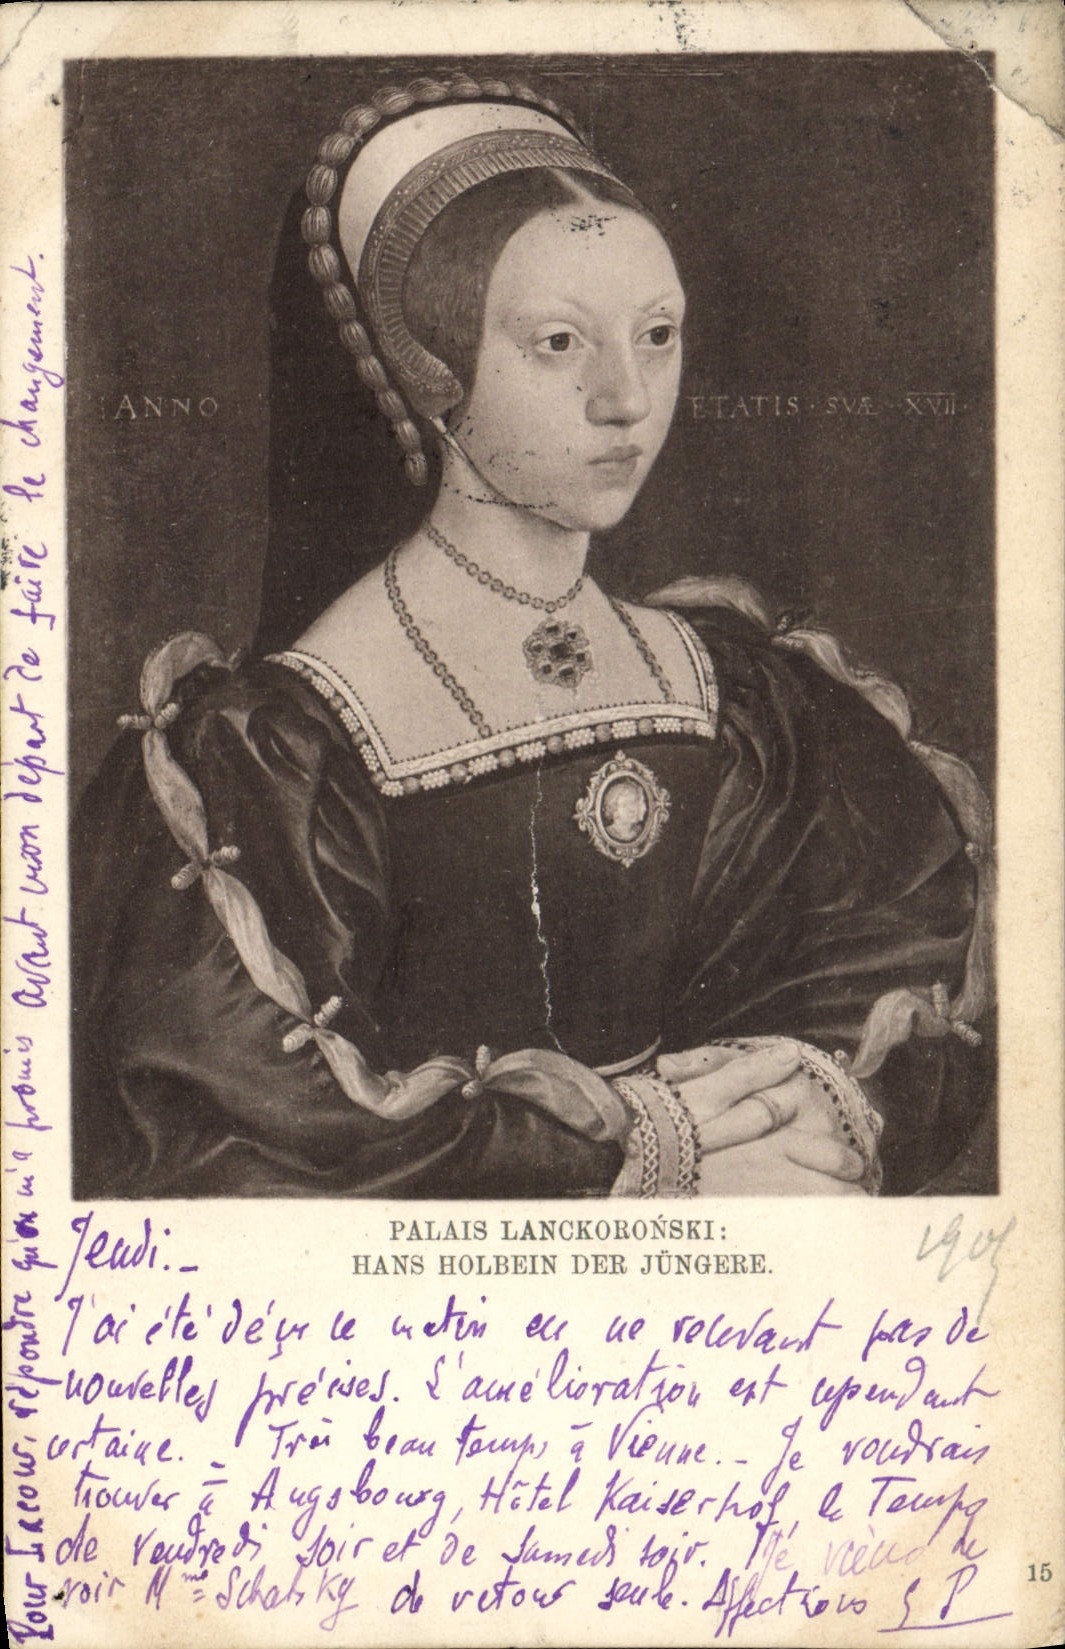 ANNO ETATIS · SVÆ · XVII ·
PALAIS LANCKOROŃSKI:
HANS HOLBEIN DER JÜNGERE.
Jeudi. –
J'ai été déçu ce matin en ne recevant pas de
nouvelles précises. L'amélioration est cependant
certaine. – Très beau temps à Vienne. – Je voudrais
trouver à Augsbourg, Hôtel Kaiserhof, le Temps
de vendredi soir et de samedi soir. Je viens de
voir Mme Schalsky de retour seule. Affections
Pour Lacour, répondre qu'on m'a promis avant mon départ de faire le changement.
15